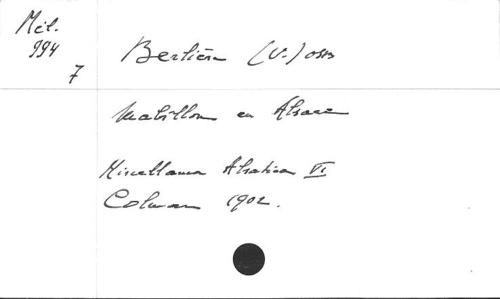 Mél.
994
7
Berlière (U.) OSB
Mabillon en Alsace
Miscellanea Alsatica VI
Colmar 1902.